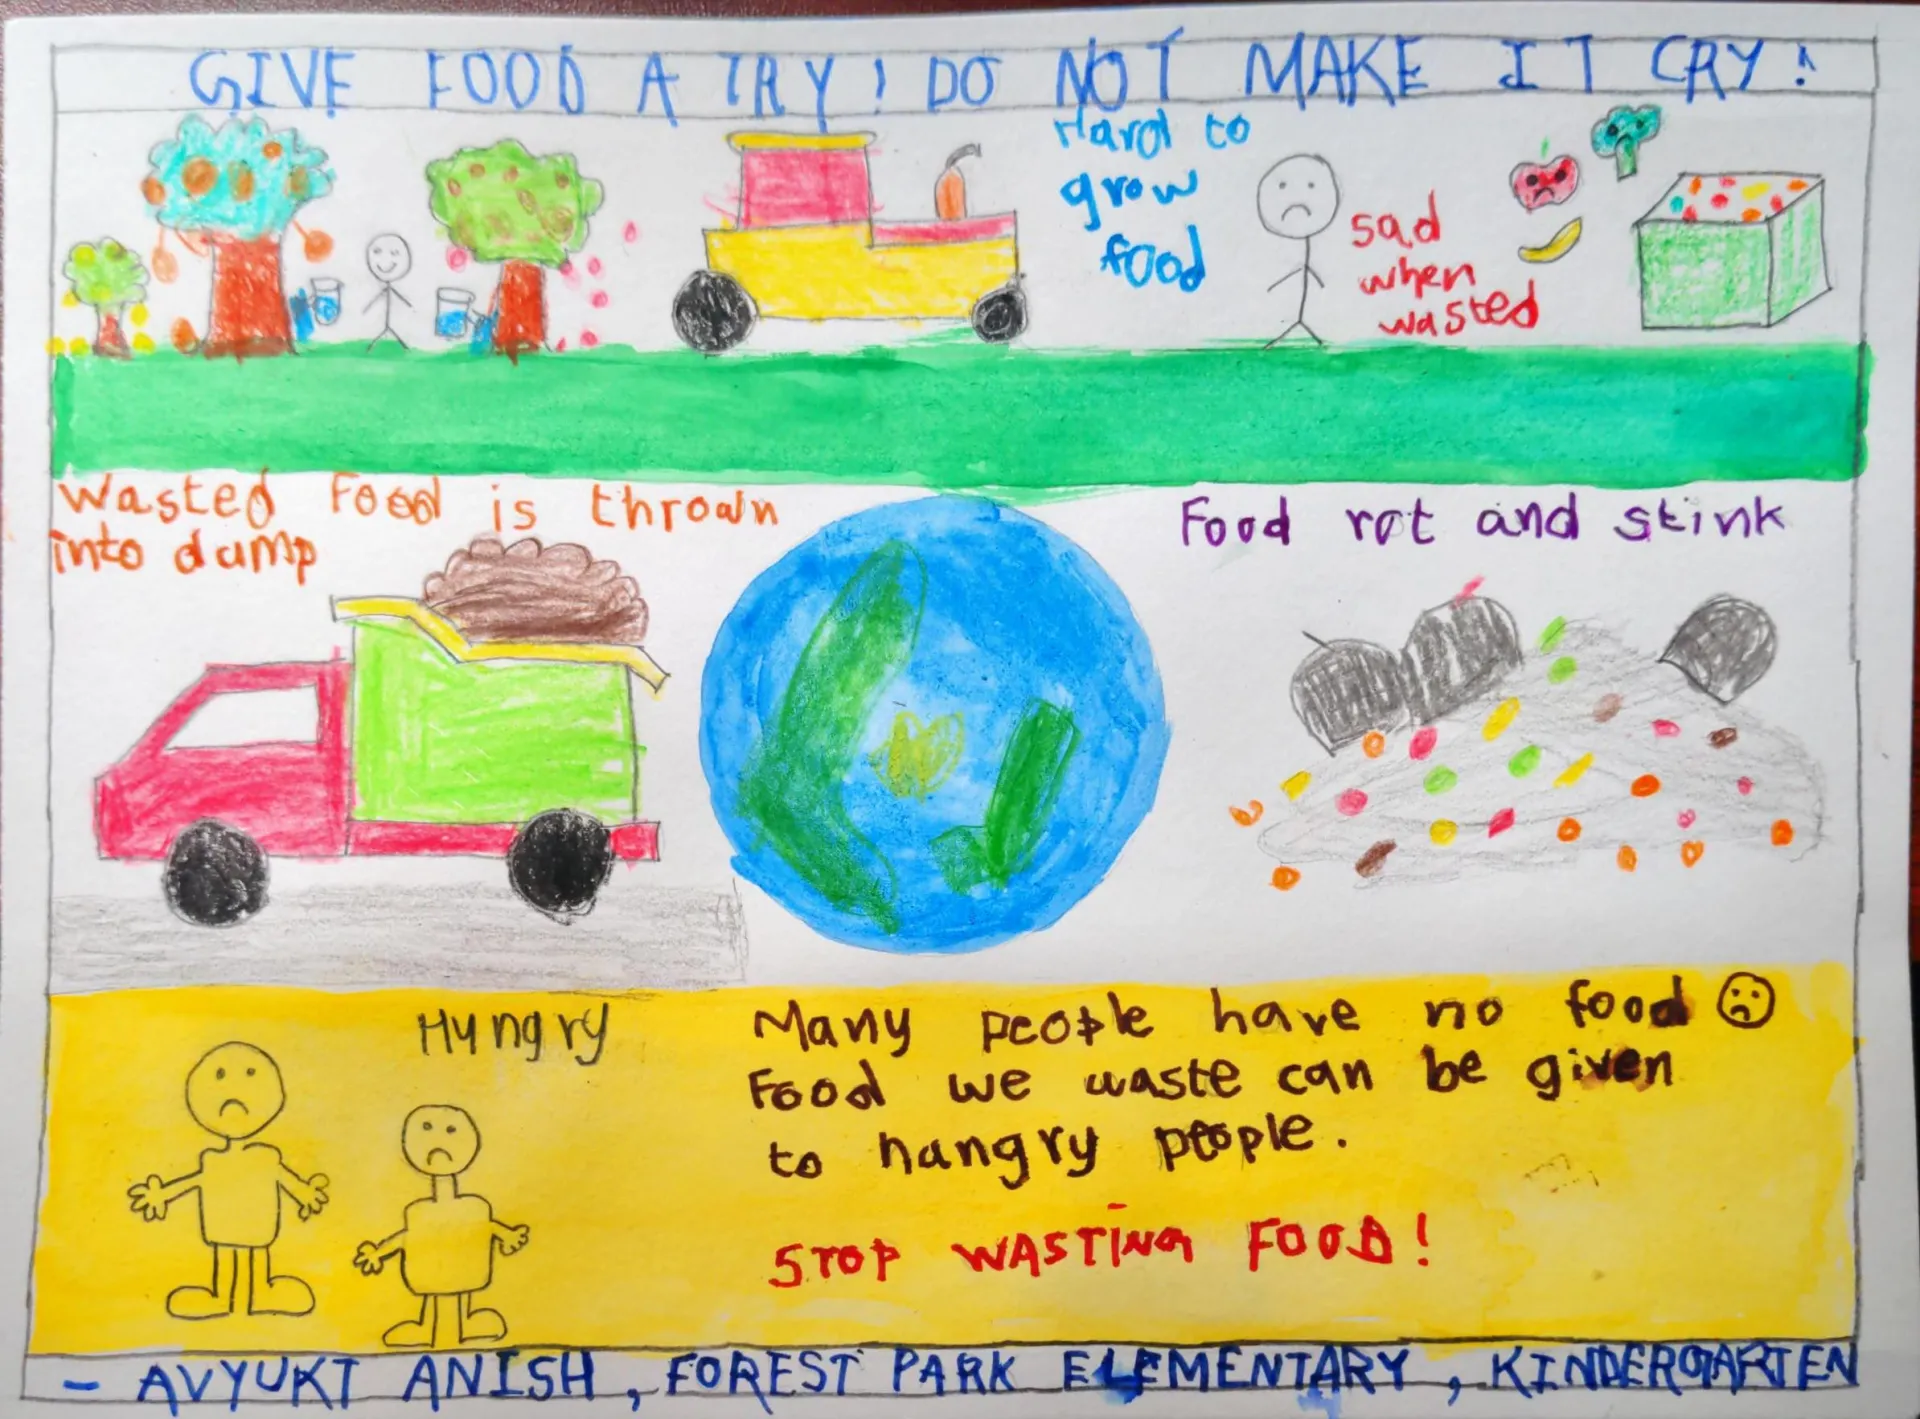 GIVE FOOD A TRY! DO NOT MAKE IT CRY!
Hard to
grow
food
sad
when
wasted
Wasted Food is thrown
into dump
Food rot and stink
Hungry
Many people have no food
Food we waste can be given
to hangry people.
STOP WASTING FOOD!
- AVYUKT ANISH, FOREST PARK ELEMENTARY, KINDERGARTEN